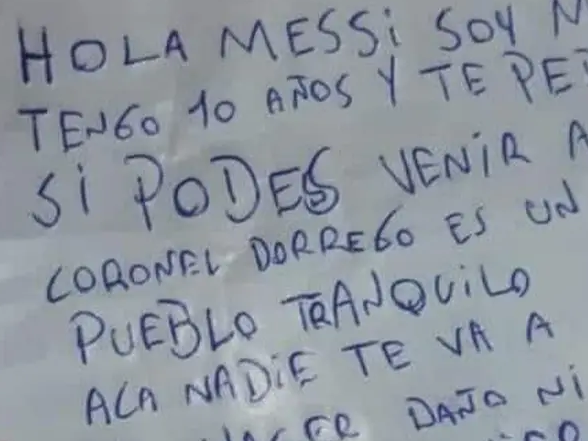 HOLA MESSi SOY
TENGO 10 AÑOS Y TE
Si PODES VENiR A
CORONEL DORREGO ES UN
PUEBLO TRANQUiLO
ACA NADiE TE VA A
DAÑO Ni